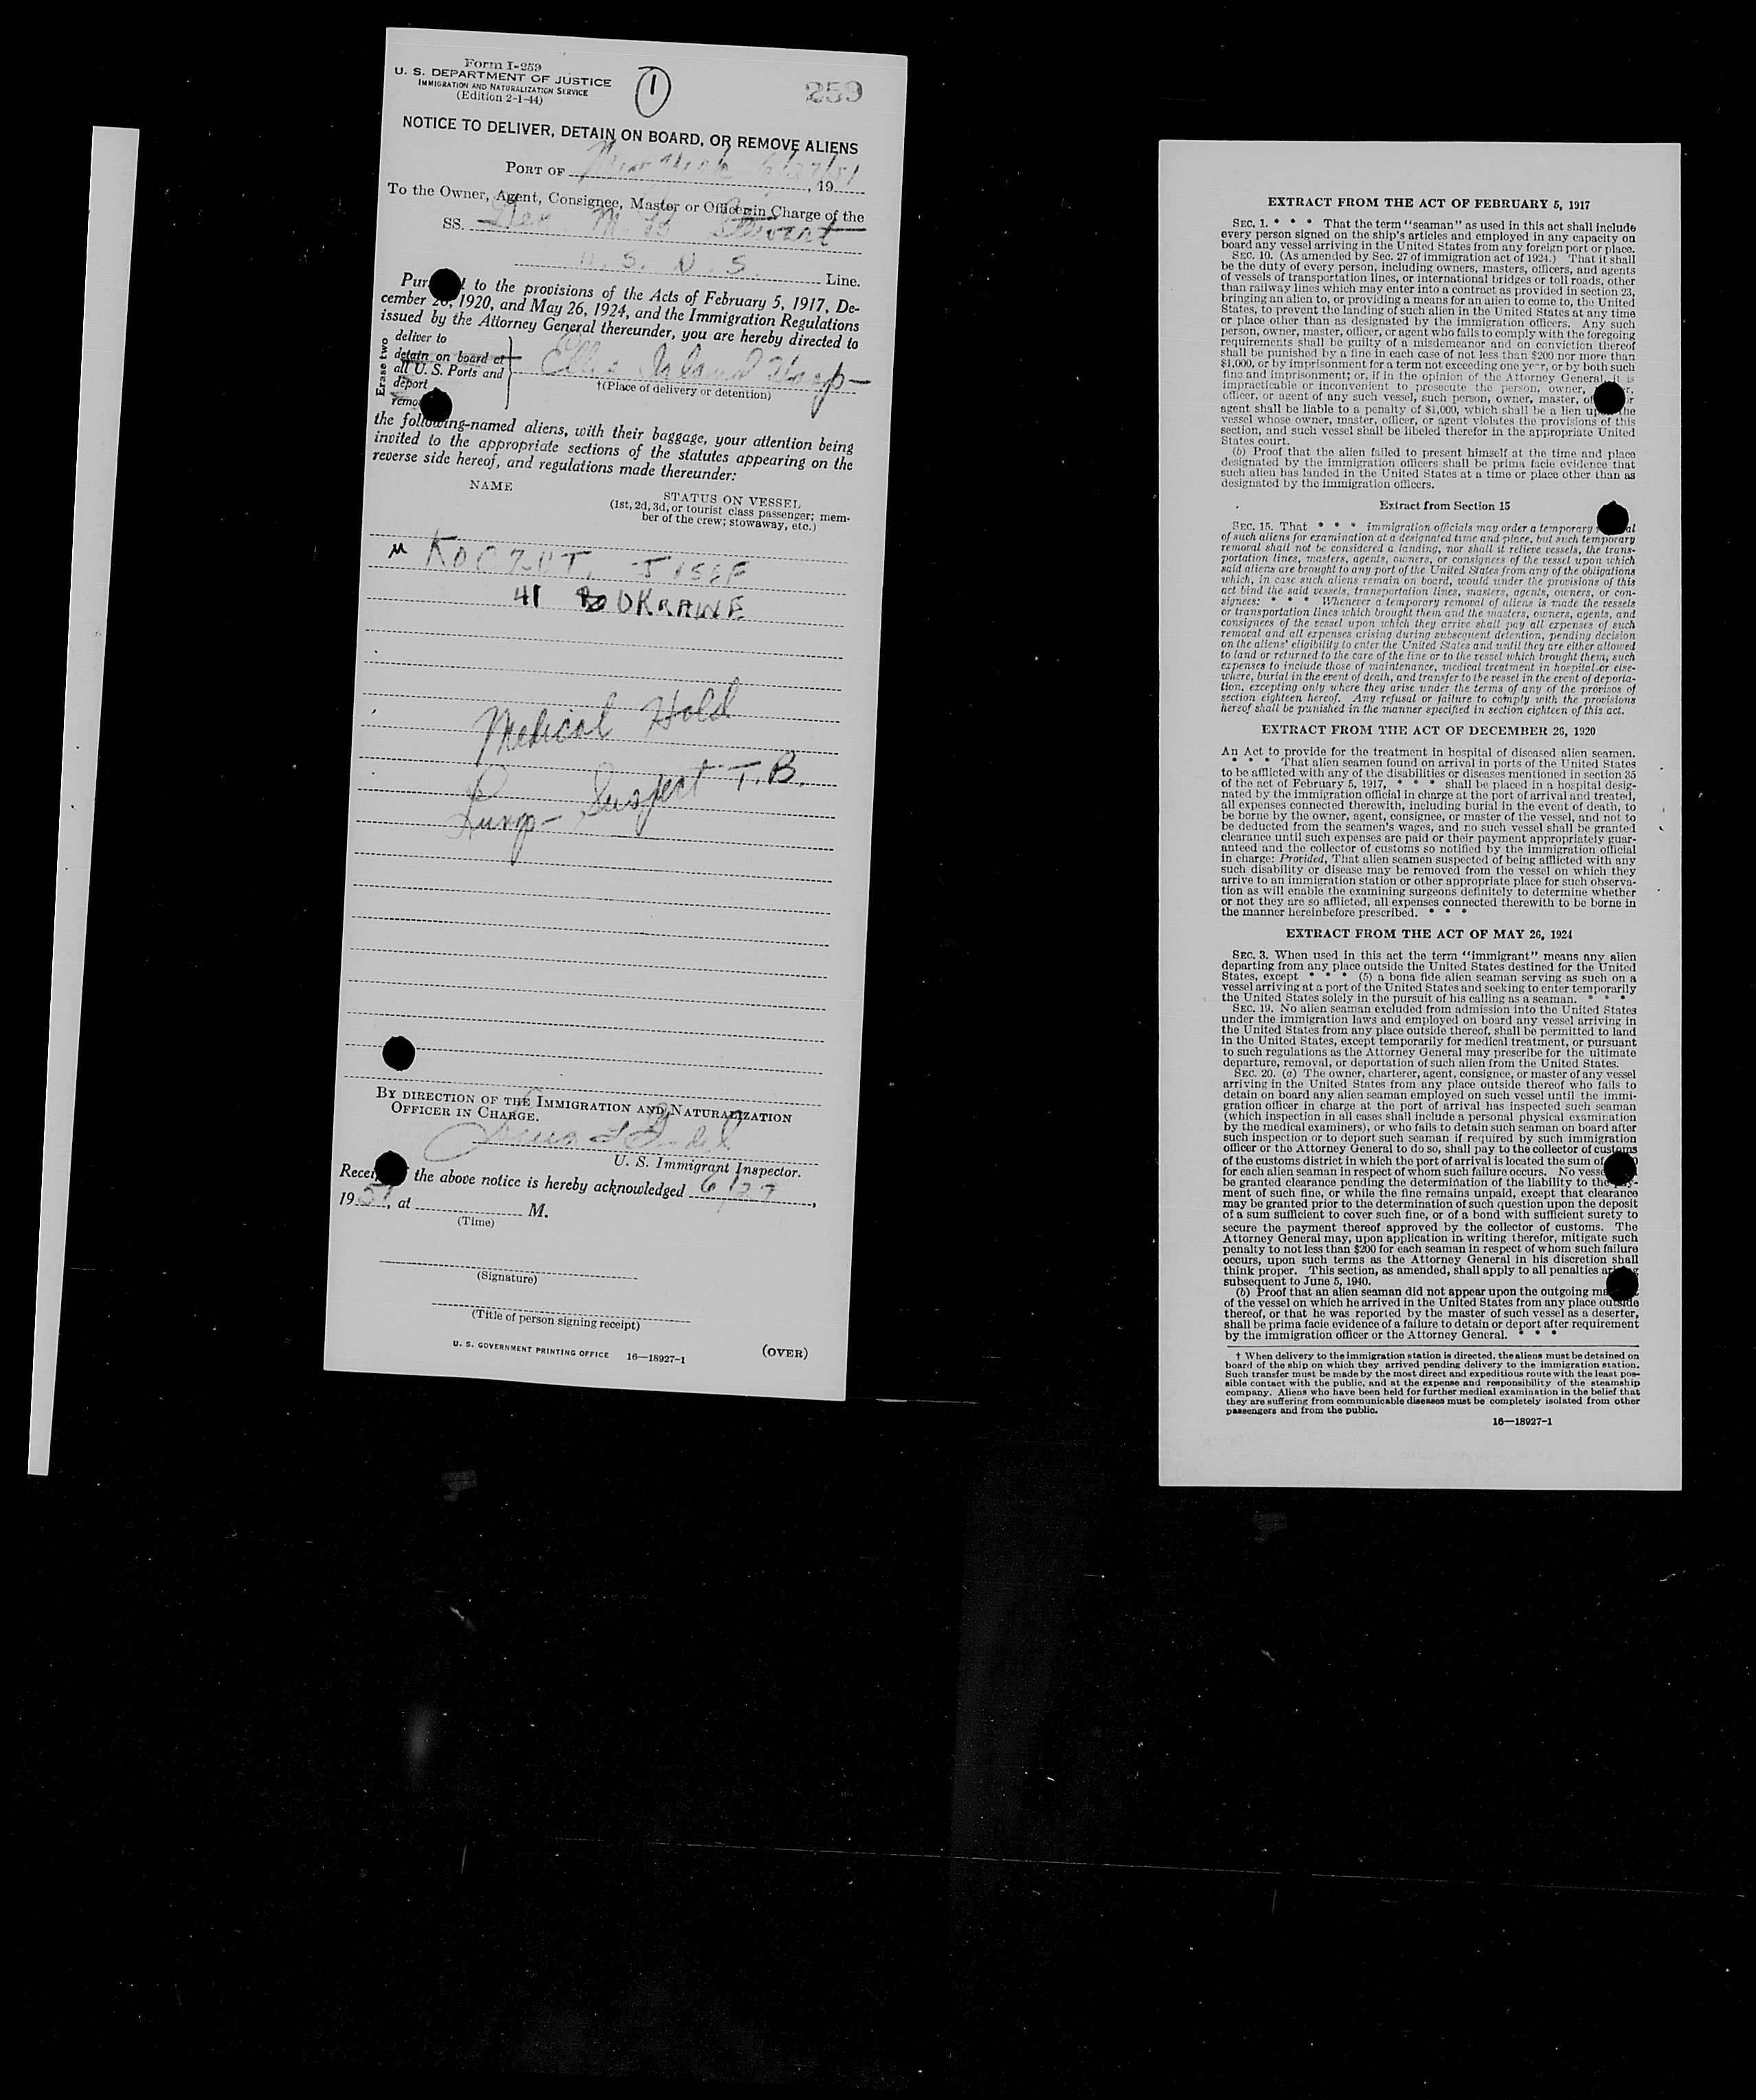 Form I-259
U. S. DEPARTMENT OF JUSTICE
IMMIGRATION AND NATURALIZATION SERVICE
(Edition 2-1-44)
1
259
NOTICE TO DELIVER, DETAIN ON BOARD, OR REMOVE ALIENS
PORT OF New York 6/27/51, 19
To the Owner, Agent, Consignee, Master or Officer in Charge of the
SS. Gen. M. B. Stewart
U. S. N. S. Line.
to the provisions of the Acts of February 5, 1917, De-
cember 26, 1920, and May 26, 1924, and the Immigration Regulations
issued by the Attorney General thereunder, you are hereby directed to
Erase two
deliver to
detain on board at
all U. S. Ports and
deport
Ellis Island Hosp-
†(Place of delivery or detention)
the following-named aliens, with their baggage, your attention being
invited to the appropriate sections of the statutes appearing on the
reverse side hereof, and regulations made thereunder:
NAME
STATUS ON VESSEL
(1st, 2d, 3d, or tourist class passenger; mem-
ber of the crew; stowaway, etc.)
M KOCZUT, JOSEF
41 UKRAINE
Medical Hold
Lung- Suspect T.B.
BY DIRECTION OF THE IMMIGRATION AND NATURALIZATION
OFFICER IN CHARGE.
U. S. Immigrant Inspector.
the above notice is hereby acknowledged 6/27,
1951, at M.
(Time)
(Signature)
(Title of person signing receipt)
U. S. GOVERNMENT PRINTING OFFICE 16—18927-1
(OVER)
EXTRACT FROM THE ACT OF FEBRUARY 5, 1917
SEC. 1. * * * That the term "seaman" as used in this act shall include
every person signed on the ship's articles and employed in any capacity on
board any vessel arriving in the United States from any foreign port or place.
SEC. 10. (As amended by Sec. 27 of immigration act of 1924.) That it shall
be the duty of every person, including owners, masters, officers, and agents
of vessels of transportation lines, or international bridges or toll roads, other
than railway lines which may enter into a contract as provided in section 23,
bringing an alien to, or providing a means for an alien to come to, the United
States, to prevent the landing of such alien in the United States at any time
or place other than as designated by the immigration officers. Any such
person, owner, master, officer, or agent who fails to comply with the foregoing
requirements shall be guilty of a misdemeanor and on conviction thereof
shall be punished by a fine in each case of not less than $200 nor more than
$1,000, or by imprisonment for a term not exceeding one year, or by both such
fine and imprisonment; or, if in the opinion of the Attorney General, it is
impracticable or inconvenient to prosecute the person, owner,
officer, or agent of any such vessel, such person, owner, master,
agent shall be liable to a penalty of $1,000, which shall be a lien upon the
vessel whose owner, master, officer, or agent violates the provisions of this
section, and such vessel shall be libeled therefor in the appropriate United
States court.
(b) Proof that the alien failed to present himself at the time and place
designated by the immigration officers shall be prima facie evidence that
such alien has landed in the United States at a time or place other than as
designated by the immigration officers.
Extract from Section 15
SEC. 15. That * * * immigration officials may order a temporary
of such aliens for examination at a designated time and place, but such temporary
removal shall not be considered a landing, nor shall it relieve vessels, the trans-
portation lines, masters, agents, owners, or consignees of the vessel upon which
said aliens are brought to any port of the United States from any of the obligations
which, in case such aliens remain on board, would under the provisions of this
act bind the said vessels, transportation lines, masters, agents, owners, or con-
signees: * * * Whenever a temporary removal of aliens is made the vessels
or transportation lines which brought them and the masters, owners, agents, and
consignees of the vessel upon which they arrive shall pay all expenses of such
removal and all expenses arising during subsequent detention, pending decision
on the aliens' eligibility to enter the United States and until they are either allowed
to land or returned to the care of the line or to the vessel which brought them, such
expenses to include those of maintenance, medical treatment in hospital or else-
where, burial in the event of death, and transfer to the vessel in the event of deporta-
tion, excepting only where they arise under the terms of any of the provisos of
section eighteen hereof. Any refusal or failure to comply with the provisions
hereof shall be punished in the manner specified in section eighteen of this act.
EXTRACT FROM THE ACT OF DECEMBER 26, 1920
An Act to provide for the treatment in hospital of diseased alien seamen.
* * * That alien seamen found on arrival in ports of the United States
to be afflicted with any of the disabilities or diseases mentioned in section 35
of the act of February 5, 1917, * * * shall be placed in a hospital desig-
nated by the immigration official in charge at the port of arrival and treated,
all expenses connected therewith, including burial in the event of death, to
be borne by the owner, agent, consignee, or master of the vessel, and not to
be deducted from the seamen's wages, and no such vessel shall be granted
clearance until such expenses are paid or their payment appropriately guar-
anteed and the collector of customs so notified by the immigration official
in charge: Provided, That alien seamen suspected of being afflicted with any
such disability or disease may be removed from the vessel on which they
arrive to an immigration station or other appropriate place for such observa-
tion as will enable the examining surgeons definitely to determine whether
or not they are so afflicted, all expenses connected therewith to be borne in
the manner hereinbefore prescribed. * * *
EXTRACT FROM THE ACT OF MAY 26, 1924
SEC. 3. When used in this act the term "immigrant" means any alien
departing from any place outside the United States destined for the United
States, except * * * (5) a bona fide alien seaman serving as such on a
vessel arriving at a port of the United States and seeking to enter temporarily
the United States solely in the pursuit of his calling as a seaman. * * *
SEC. 19. No alien seaman excluded from admission into the United States
under the immigration laws and employed on board any vessel arriving in
the United States from any place outside thereof, shall be permitted to land
in the United States, except temporarily for medical treatment, or pursuant
to such regulations as the Attorney General may prescribe for the ultimate
departure, removal, or deportation of such alien from the United States.
SEC. 20. (a) The owner, charterer, agent, consignee, or master of any vessel
arriving in the United States from any place outside thereof who fails to
detain on board any alien seaman employed on such vessel until the immi-
gration officer in charge at the port of arrival has inspected such seaman
(which inspection in all cases shall include a personal physical examination
by the medical examiners), or who fails to detain such seaman on board after
such inspection or to deport such seaman if required by such immigration
officer or the Attorney General to do so, shall pay to the collector of customs
of the customs district in which the port of arrival is located the sum of
for each alien seaman in respect of whom such failure occurs. No vessel
be granted clearance pending the determination of the liability to the pay-
ment of such fine, or while the fine remains unpaid, except that clearance
may be granted prior to the determination of such question upon the deposit
of a sum sufficient to cover such fine, or of a bond with sufficient surety to
secure the payment thereof approved by the collector of customs. The
Attorney General may, upon application in writing therefor, mitigate such
penalty to not less than $200 for each seaman in respect of whom such failure
occurs, upon such terms as the Attorney General in his discretion shall
think proper. This section, as amended, shall apply to all penalties arising
subsequent to June 5, 1940.
(b) Proof that an alien seaman did not appear upon the outgoing
of the vessel on which he arrived in the United States from any place outside
thereof, or that he was reported by the master of such vessel as a deserter,
shall be prima facie evidence of a failure to detain or deport after requirement
by the immigration officer or the Attorney General. * * *
† When delivery to the immigration station is directed, the aliens must be detained on
board of the ship on which they arrived pending delivery to the immigration station.
Such transfer must be made by the most direct and expeditious route with the least pos-
sible contact with the public, and at the expense and responsibility of the steamship
company. Aliens who have been held for further medical examination in the belief that
they are suffering from communicable diseases must be completely isolated from other
passengers and from the public.
16—18927-1